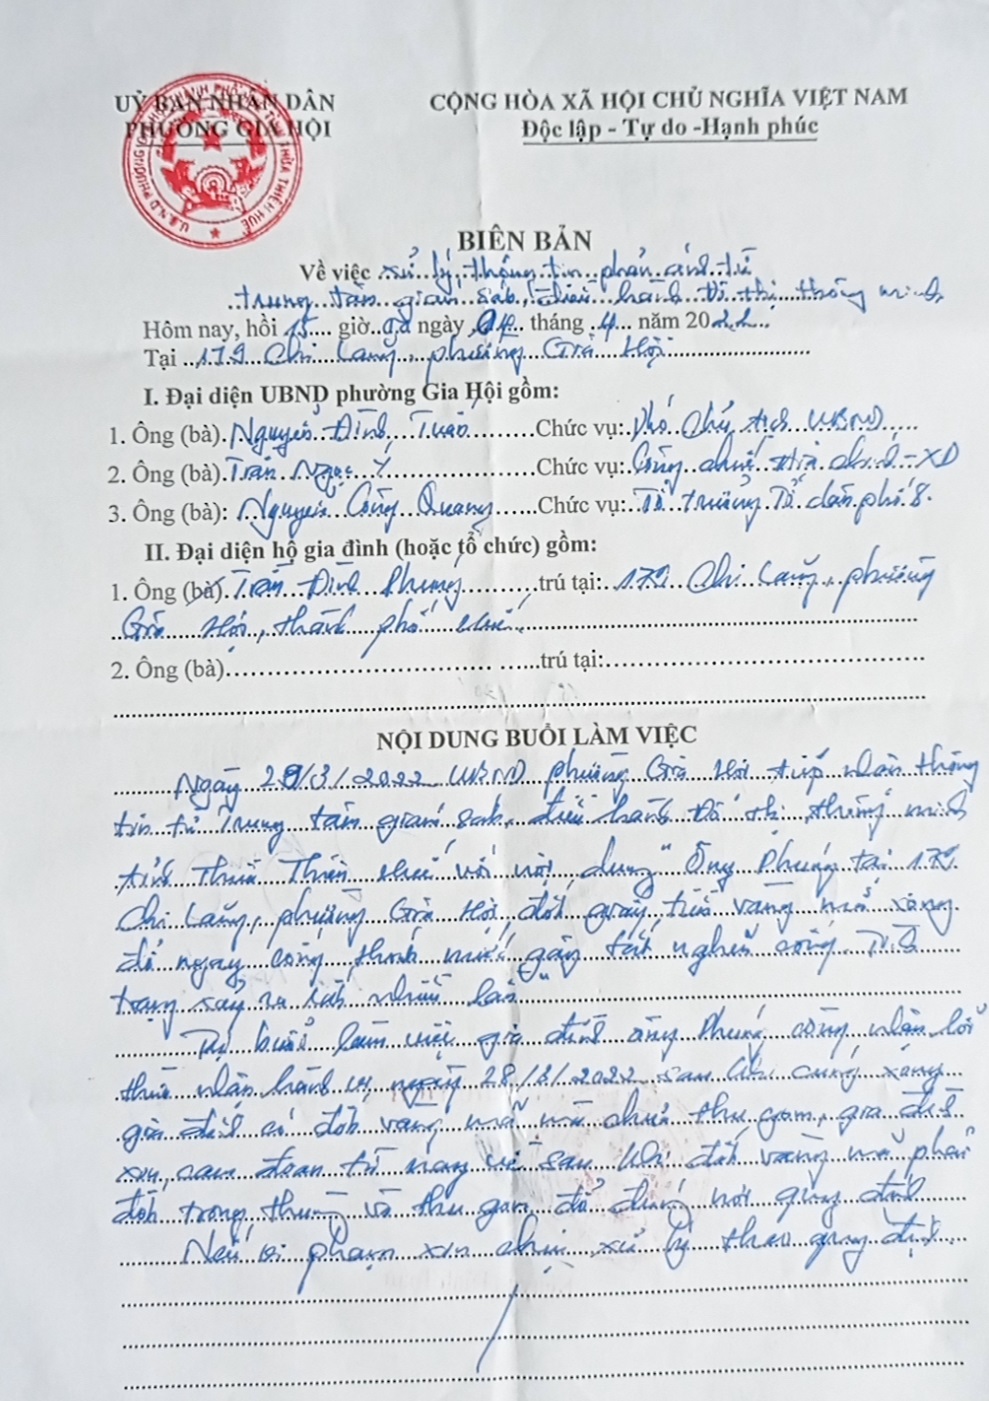 UỶ BAN NHÂN DÂN
PHƯỜNG GIA HỘI
CỘNG HÒA XÃ HỘI CHỦ NGHĨA VIỆT NAM
Độc lập - Tự do -Hạnh phúc
BIÊN BẢN
Về việc xử lý thông tin phản ánh từ
trung tâm giám sát, điều hành đô thị thông minh
Hôm nay, hồi 15 giờ 00 ngày tháng 4 năm 2022
Tại 179 Chi Lăng, phường Gia Hội
I. Đại diện UBND phường Gia Hội gồm:
1. Ông (bà). Nguyễn Đình Chức vụ: Phó Chủ tịch UBND
2. Ông (bà). Trần Ngọc Ý Chức vụ: Công chức địa chính - XD
3. Ông (bà): Nguyễn Công Quang Chức vụ: Tổ trưởng Tổ dân phố 8.
II. Đại diện hộ gia đình (hoặc tổ chức) gồm:
1. Ông (bà). Trần Đình Phụng trú tại: 179 Chi Lăng, phường
Gia Hội, thành phố Huế.
2. Ông (bà) trú tại:
NỘI DUNG BUỔI LÀM VIỆC
Ngày 28/3/2022 UBND phường Gia Hội tiếp nhận thông
tin từ Trung tâm giám sát, điều hành Đô thị thông minh
tỉnh Thừa Thiên Huế với nội dung "Ông Phụng tại 179
Chi Lăng, phường Gia Hội, đốt giấy tiền vàng mã xong
đổ ngay cống thoát nước gây tắt nghẽn cống. Tình
trạng xảy ra rất nhiều lần"
Tại buổi làm việc gia đình ông Phụng công nhận lỗi
thừa nhận hành vi, ngày 28/3/2022 sau khi cúng xong
gia đình có đốt vàng mã mà chưa thu gom, gia đình
xin cam đoan từ nay về sau khi đốt vàng mã phải
đốt trong thùng và thu gom đổ đúng nơi quy định
Nếu vi phạm xin chịu xử lý theo quy định.